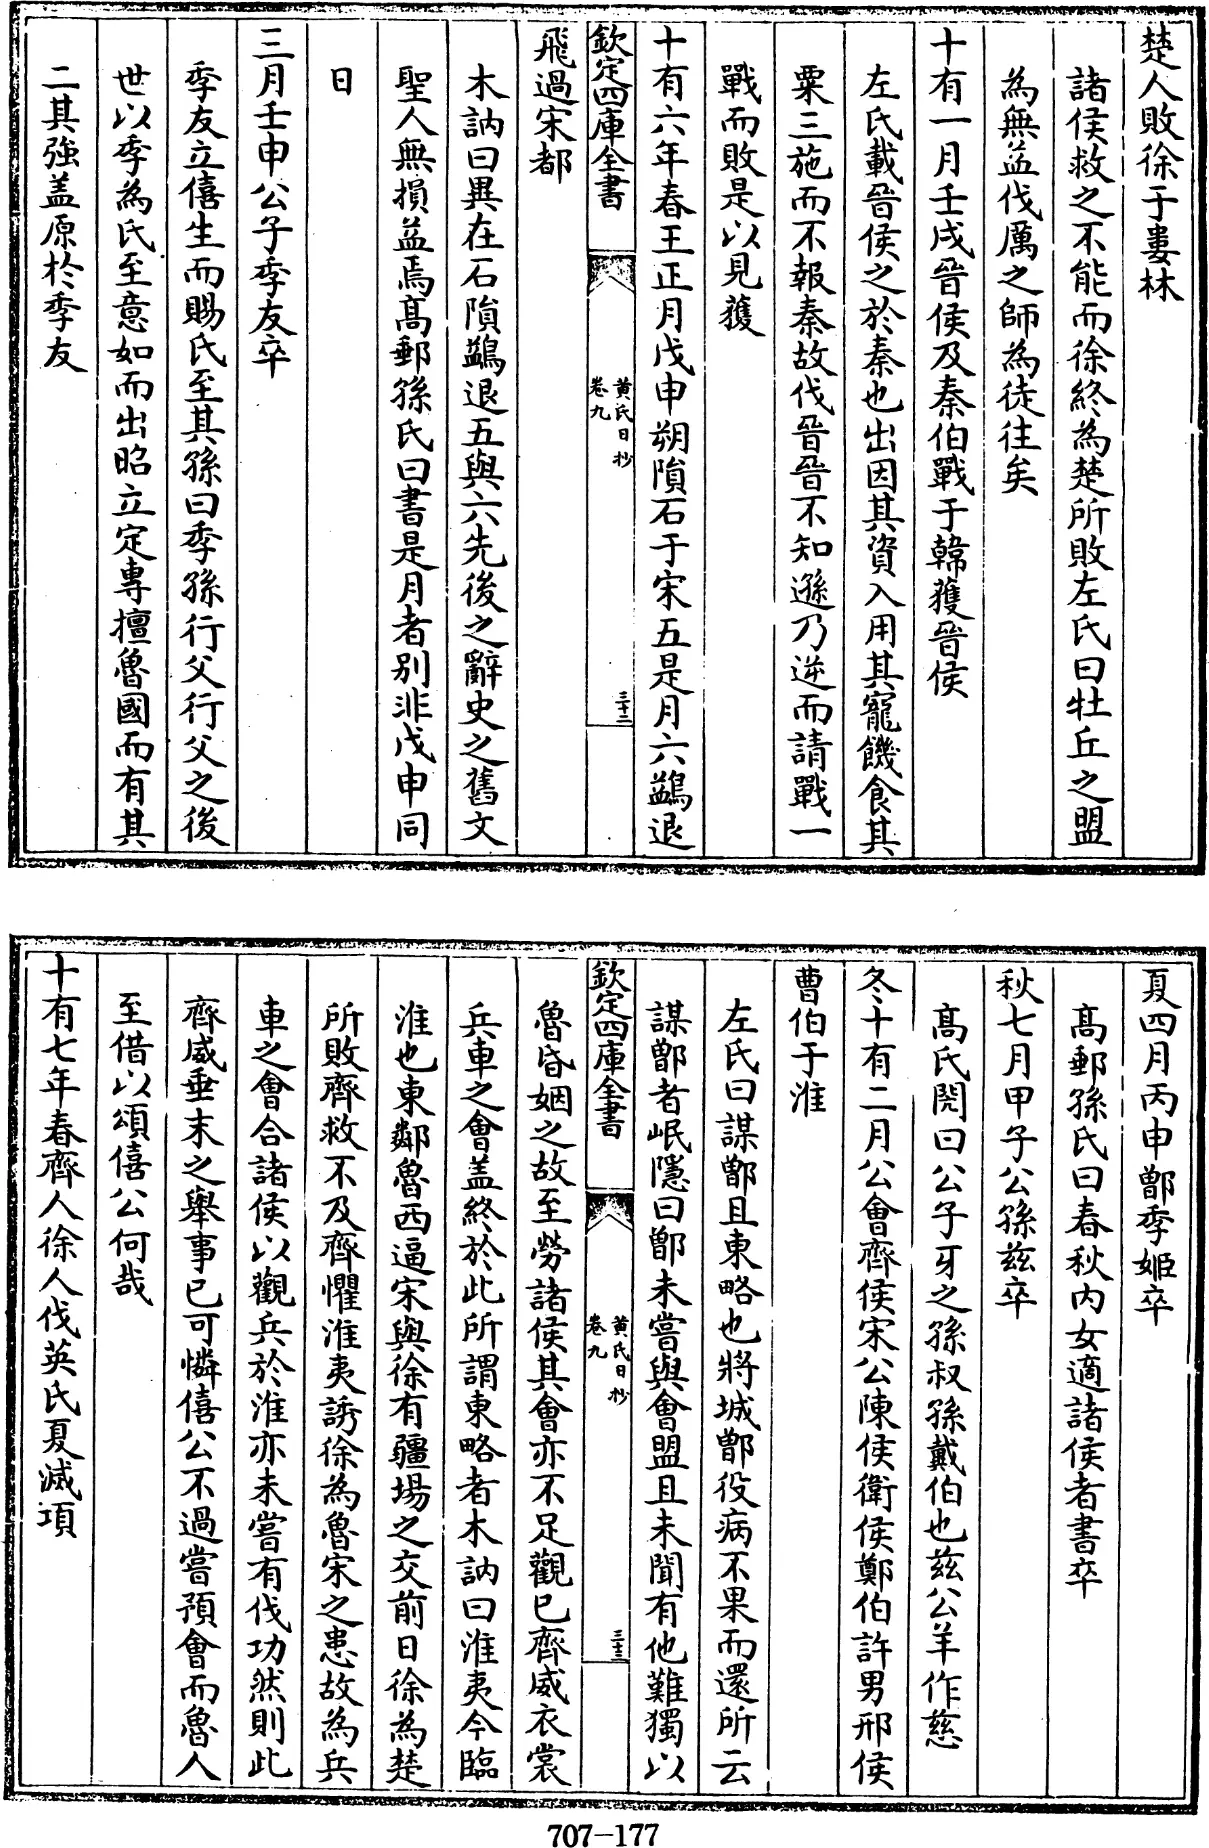 楚人敗徐于婁林
諸侯救之不能而徐終為楚所敗左氏曰牡丘之盟
為無益伐厲之師為徒往矣
十有一月壬戌晉侯及秦伯戰于韓獲晉侯
左氏載晉侯之於秦也出因其資入用其寵饑食其
粟三施而不報秦故伐晉晉不知遜乃逆而請戰一
戰而敗是以見獲
十有六年春王正月戊申朔隕石于宋五是月六鷁退
欽定四庫全書
黄氏日抄
卷九
三十二
飛過宋都
木訥曰異在石隕鷁退五與六先後之辭史之舊文
聖人無損益焉髙郵孫氏曰書是月者别非戊申同
日
三月壬申公子季友卒
季友立僖生而賜氏至其孫曰季孫行父行父之後
世以季為氏至意如而出昭立定專擅魯國而有其
二其強盖原於季友
夏四月丙申鄫季姬卒
髙郵孫氏曰春秋内女適諸侯者書卒
秋七月甲子公孫兹卒
髙氏閌曰公子牙之孫叔孫戴伯也兹公羊作慈
冬十有二月公會齊侯宋公陳侯衛侯鄭伯許男邢侯
曹伯于淮
左氏曰謀鄫且東略也將城鄫役病不果而還所云
謀鄫者岷隱曰鄫未嘗與會盟且未聞有他難獨以
欽定四庫全書
黄氏日抄
卷九
三十三
魯昏姻之故至勞諸侯其會亦不足觀已齊威衣裳
兵車之會盖終於此所謂東略者木訥曰淮夷今臨
淮也東鄰魯西逼宋與徐有疆場之交前日徐為楚
所敗齊救不及齊懼淮夷誘徐為魯宋之患故為兵
車之會合諸侯以觀兵於淮亦未嘗有伐功然則此
齊威垂末之舉事已可憐僖公不過嘗預會而魯人
至借以頌僖公何哉
十有七年春齊人徐人伐英氏夏滅項
707-177